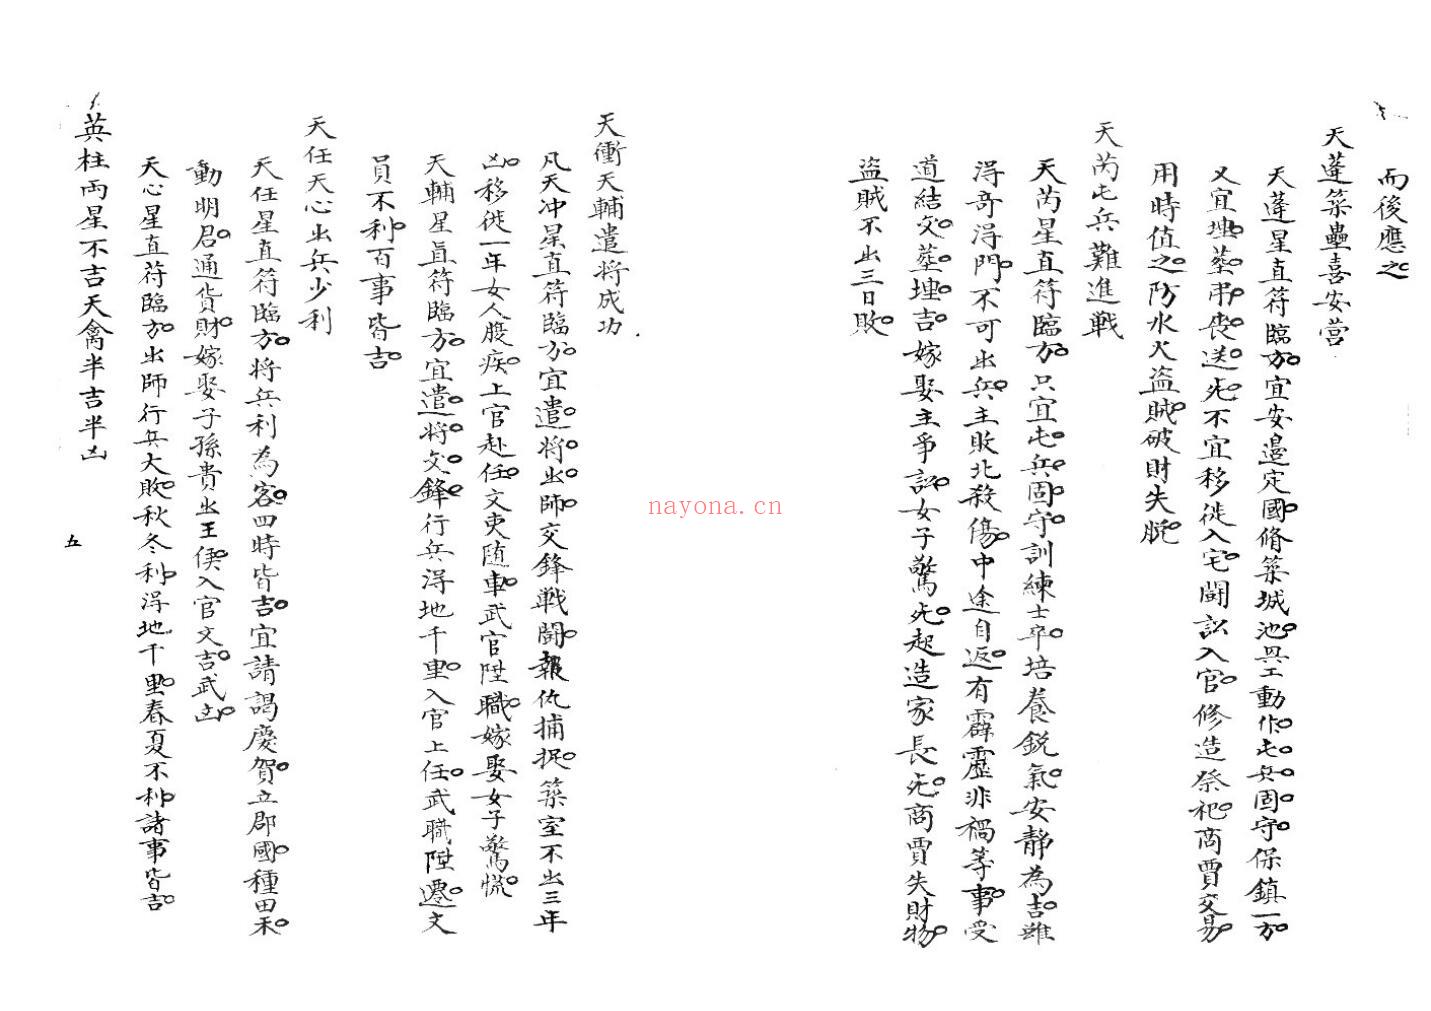 而後應之
天蓬築壘喜安營
天蓬星直符臨方宜安邊定國脩築城池興工動作屯兵固守保鎮一方
又宜埋葬弔喪送死不宜移徙入宅鬪訟入官修造祭祀商賈交易
用時值之防水火盜賊破財失脫
天芮屯兵難進戰
天芮星直符臨方只宜屯兵固守訓練士卒培養銳氣安靜為吉雖
淂竒淂門不可出兵主敗北殺傷中途自返有霹靂非禍等事受
道結交葬埋吉嫁娶主爭訟女子驚死起造家長死商賈失財物
盜賊不出三日敗
天衝天輔遣将成功
凡天冲星直符臨方宜遣将出師交鋒戰鬪報仇捕捉築室不出三年
凶移徙一年女人廢疾上官赴任文吏随車武官陞職嫁娶女子驚慌
天輔星直符臨方宜遣将交鋒行兵淂地千里入官上任武職陞遷文
員不利百事皆吉
天任天心出兵少利
天任星直符臨方将兵利為客四時皆吉宜請謁慶賀立郡國種田禾
動明君通貨財嫁娶子孫貴出王侯入官文吉武凶
天心星直符臨方出師行兵大敗秋冬利淂地千里春夏不利諸事皆吉
英柱両星不吉天禽半吉半凶
五
nayona.cn